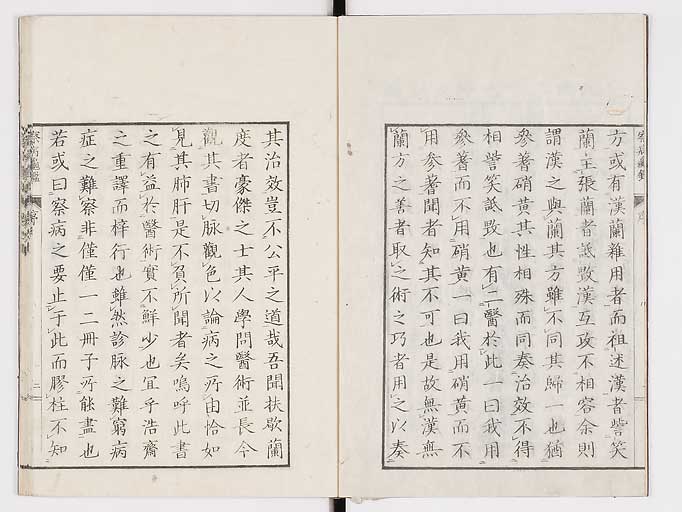 方或有漢蘭雜用者而祖述漢者訾笑
蘭主張蘭者詆毀漢互攻不相容余則
謂漢之與蘭其方雖不同其歸一也猶
參蓍硝黃其性相殊而同奏治效不得
相訾笑詆毀也有二醫於此一曰我用
參蓍而不用硝黃一曰我用硝黃而不
用參蓍聞者知其不可也是故無漢無
蘭方之善者取之術之巧者用之以奏
其治效豈不公平之道哉吾聞扶歇蘭
度者豪傑之士其人學問醫術並長今
觀其書切脉觀色以論病之所由恰如
見其肺肝是不負所聞者矣嗚呼此書
之有益於醫術實不鮮少也宜乎浩齋
之重譯而梓行也雖然診脉之難窮病
症之難察非僅僅一二冊子所能盡也
若或曰察病之要止于此而膠柱不知